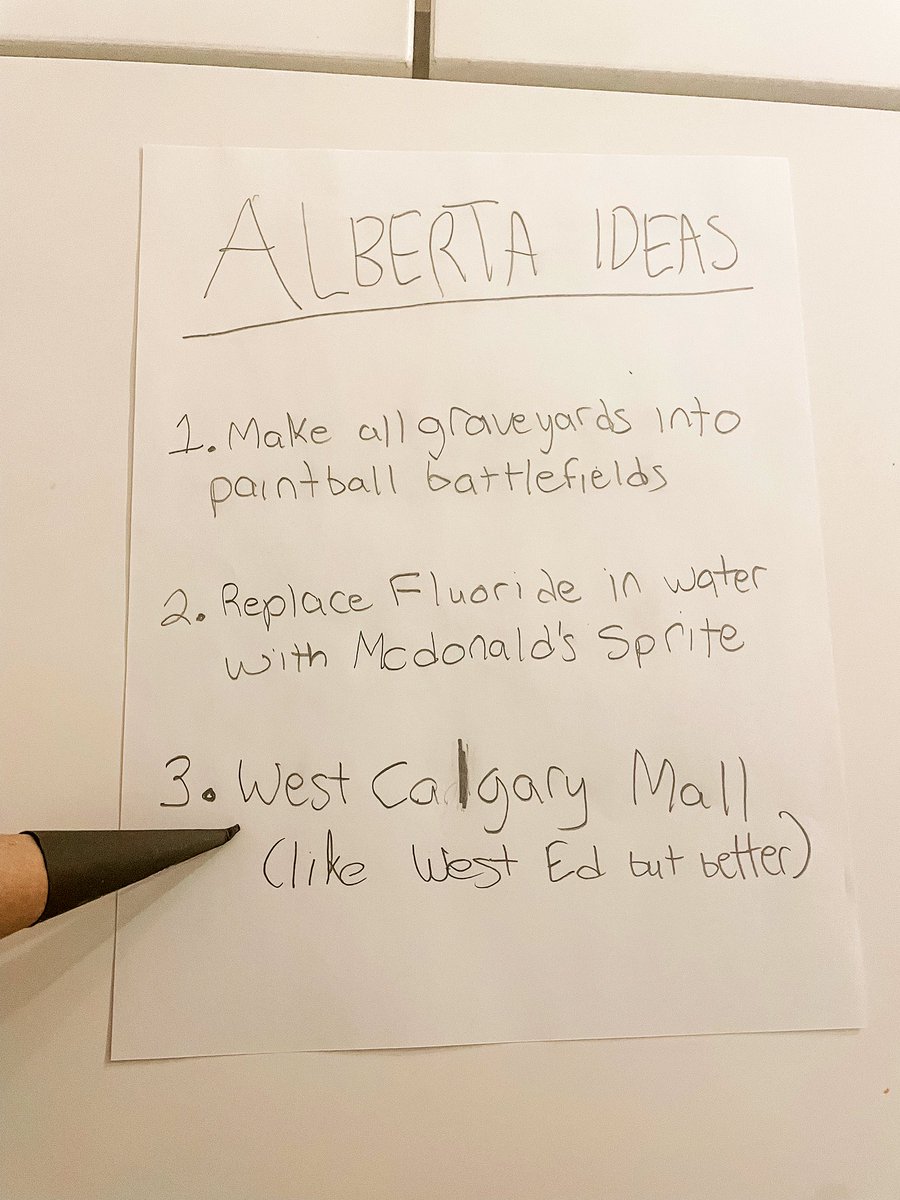 ALBERTA IDEAS
1. Make all graveyards into
paintball battlefields
2. Replace Fluoride in water
with Mcdonald's Sprite
3. West Calgary Mall
(like West Ed but better)